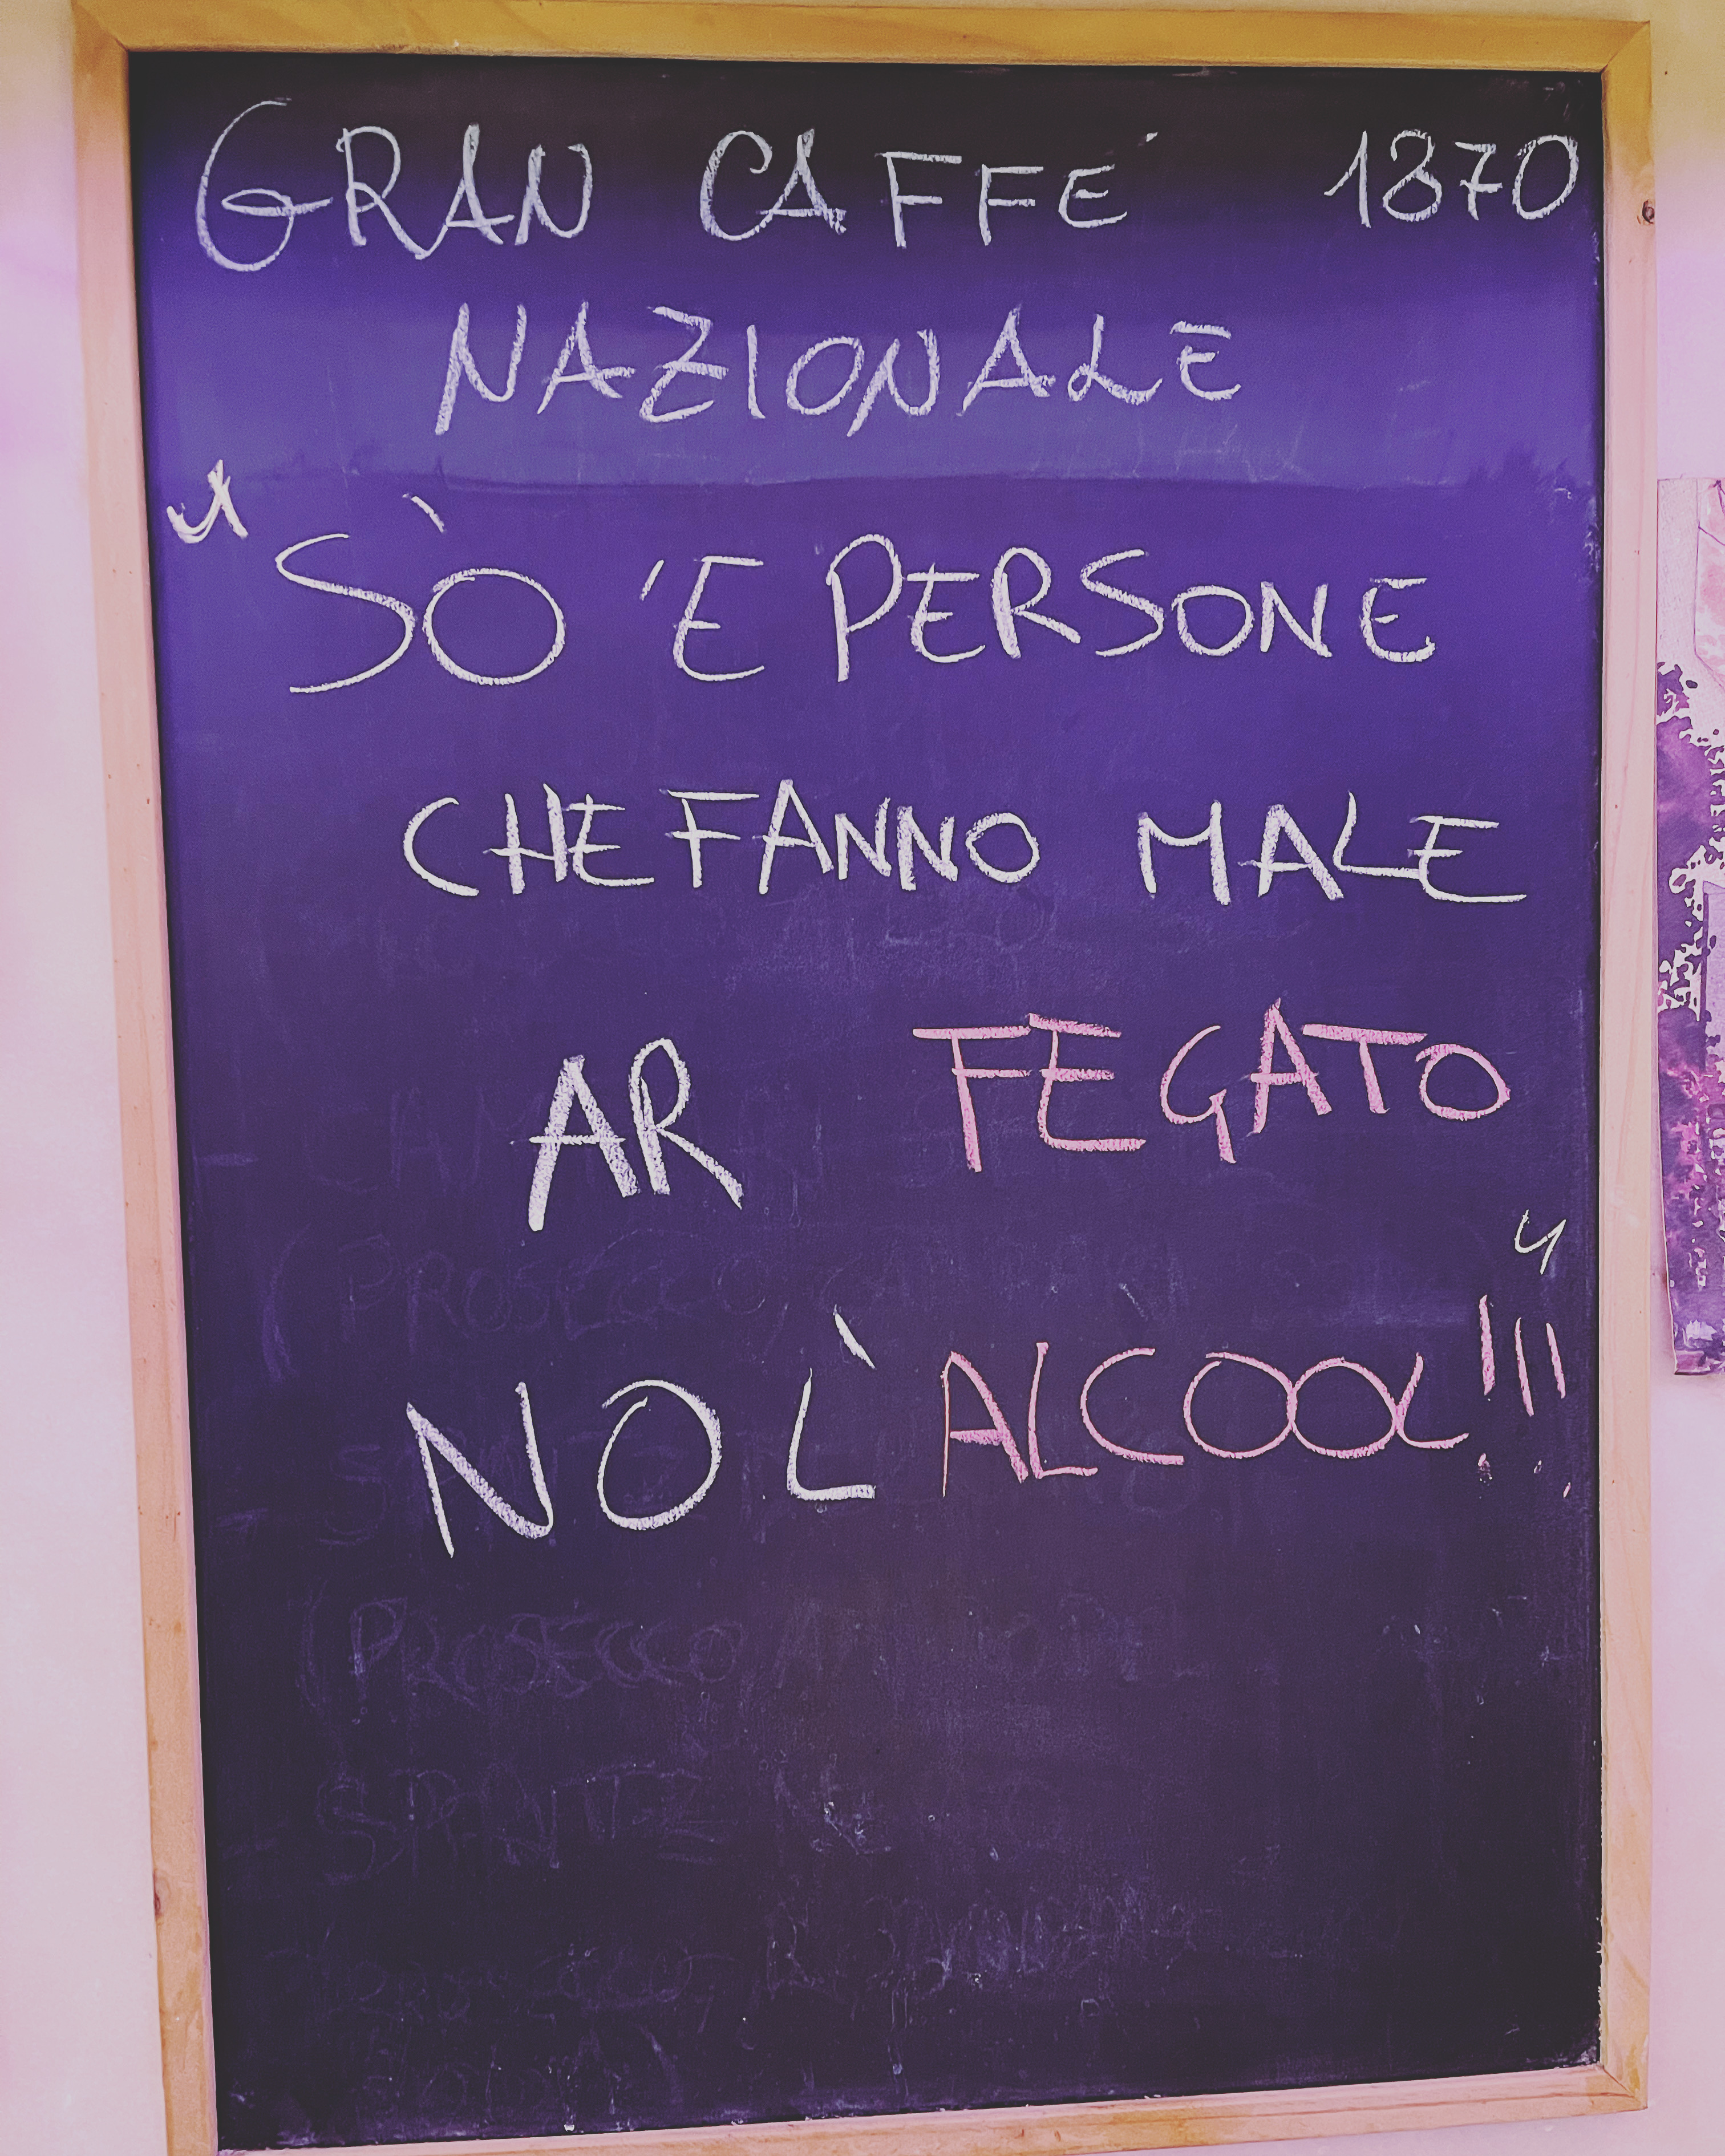 GRAN CAFFE' 1870
NAZIONALE
"SÒ 'E PERSONE
CHE FANNO MALE
AR FEGATO
NO L'ALCOOL!!!"
(PROSECCO,
(PROSECCO